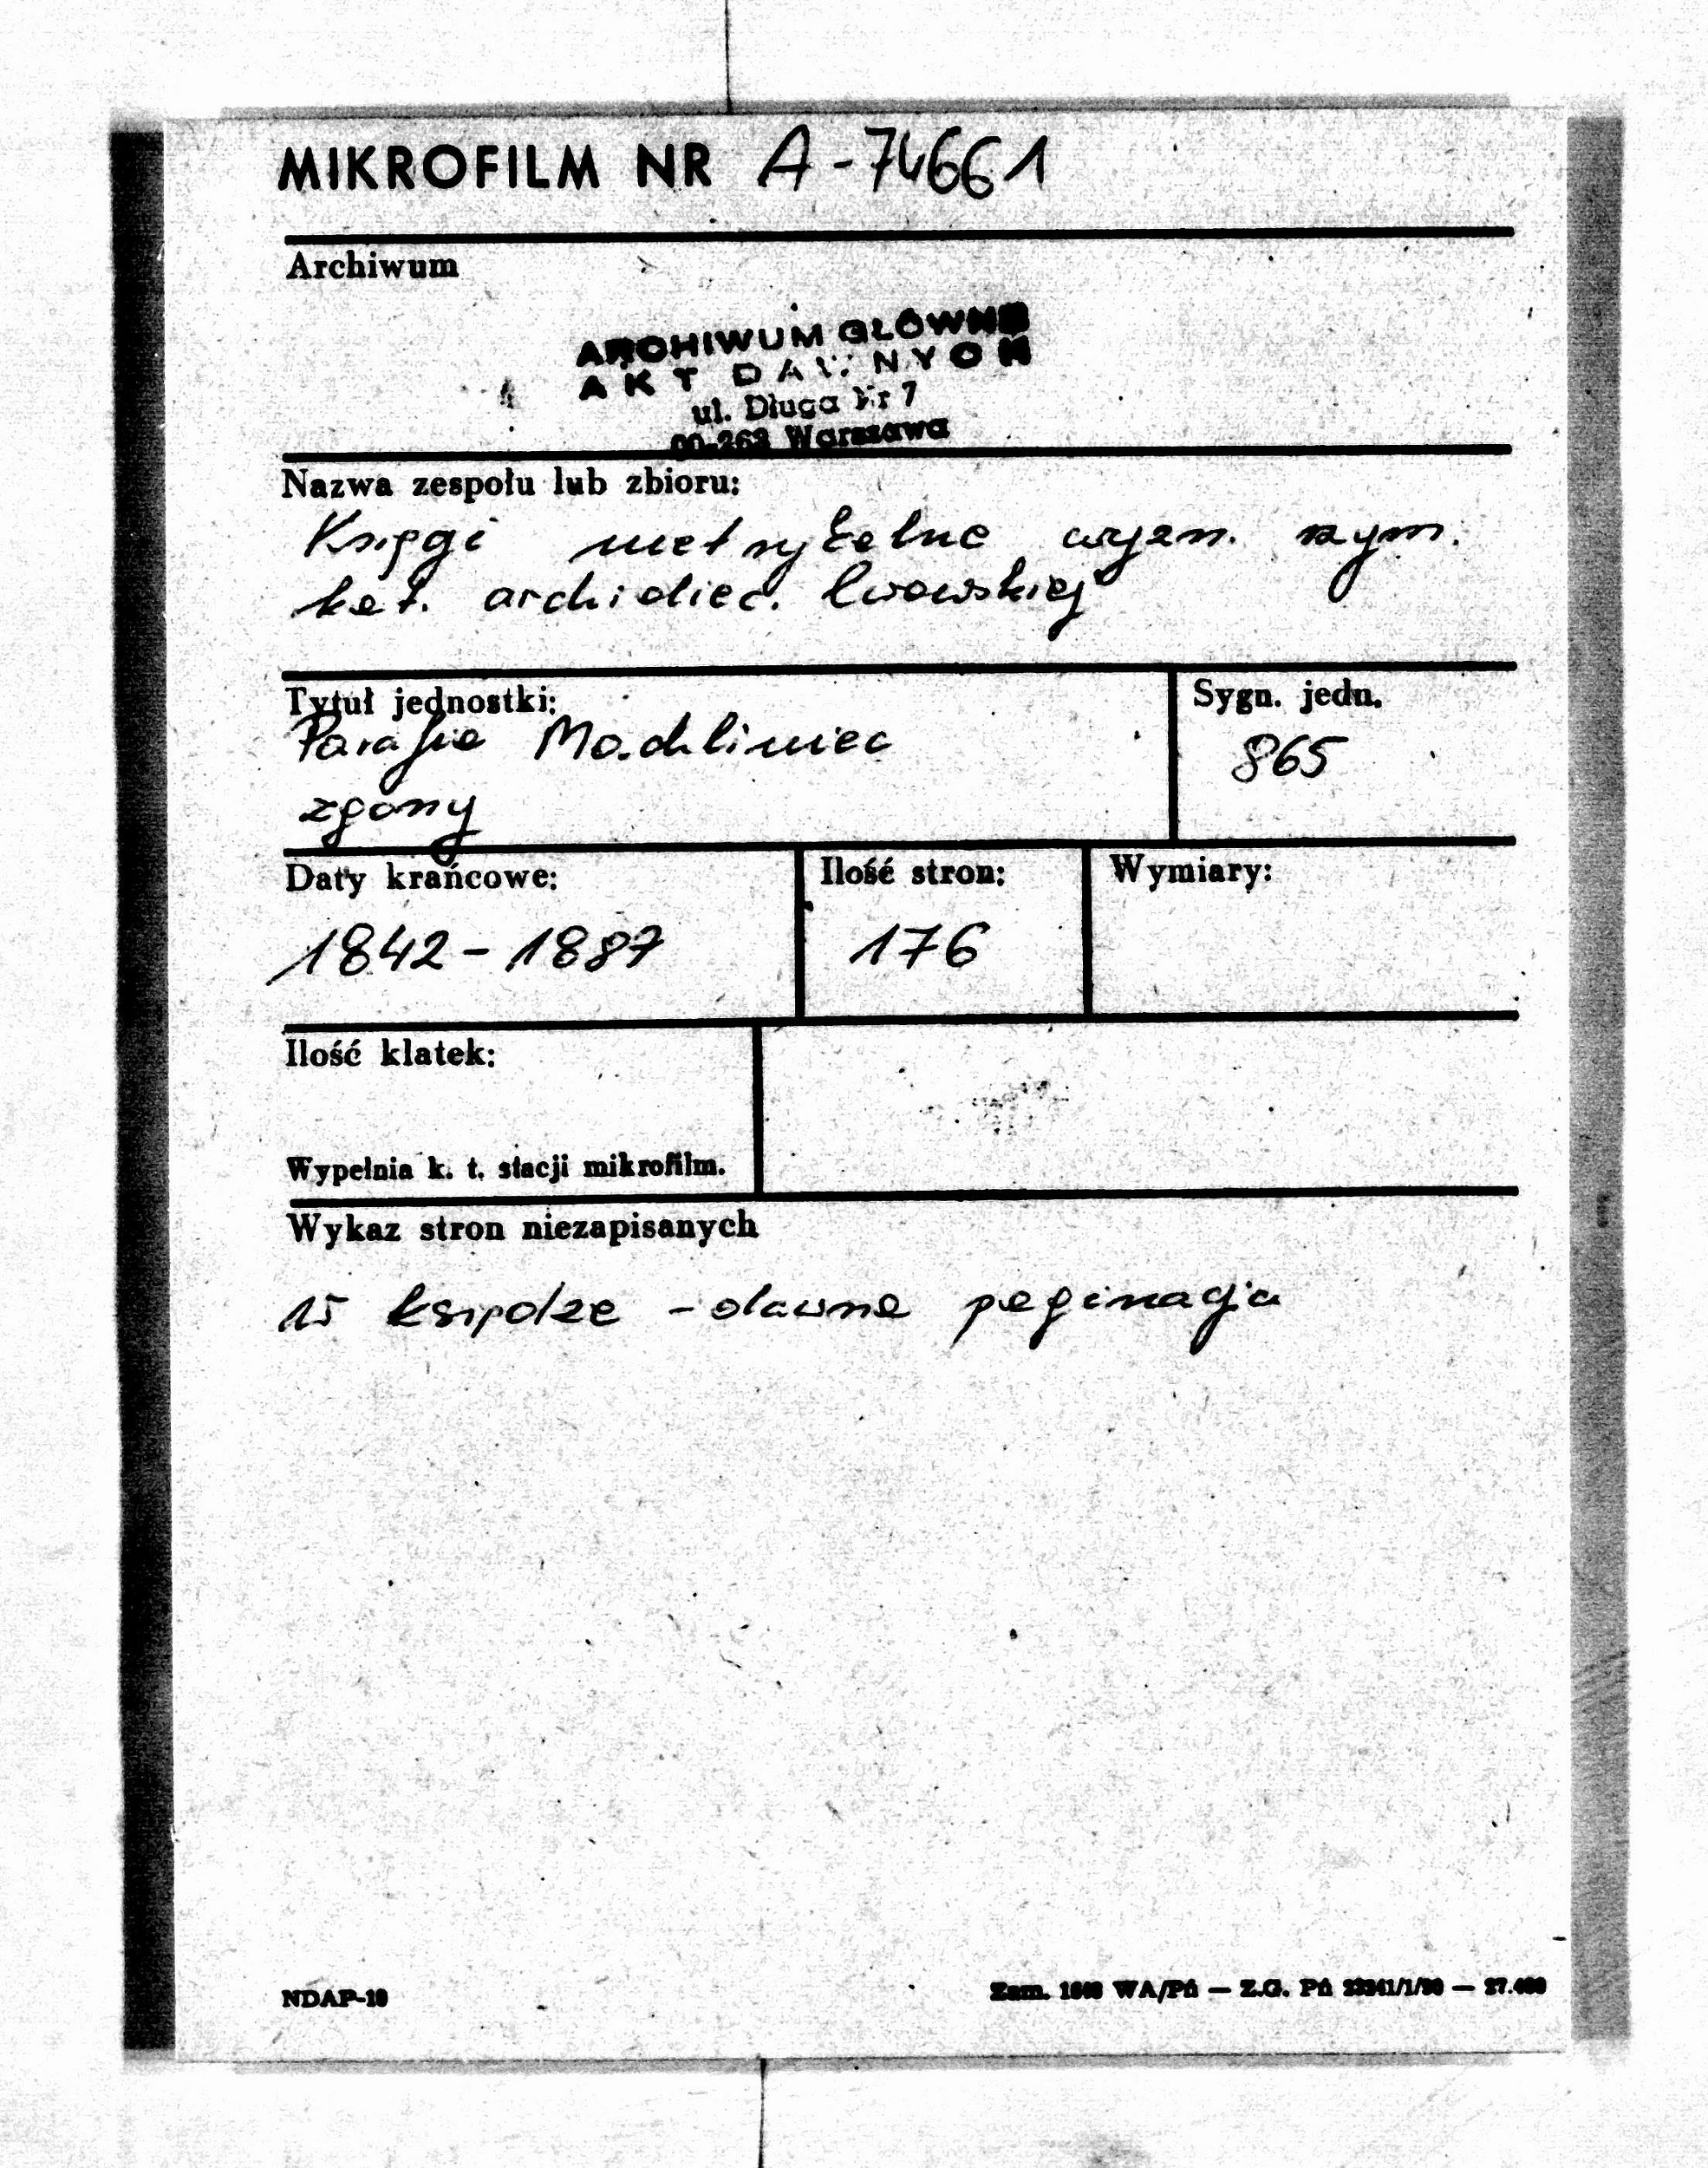 MIKROFILM NR A-74661
Archiwum
ARCHIWUM GŁÓWNE
AKT DAWNYCH
ul. Długa Nr 7
00-263 Warszawa
Nazwa zespołu lub zbioru:
Księgi metrykalne wyzn. rzym.
kat. archidiec. lwowskiej
Tytuł jednostki:
Sygn. jedn.
Parafia Machliniec
865
zgony
Daty krańcowe:
Ilość stron:
Wymiary:
1842-1887
176
Ilość klatek:
Wypełnia k. t. stacji mikrofilm.
Wykaz stron niezapisanych
W księdze - dawna paginacja
NDAP-10
Zam. WA/Pń — Z.G. Pń